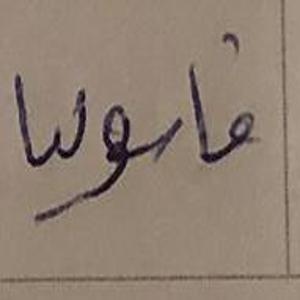 فاصوليا